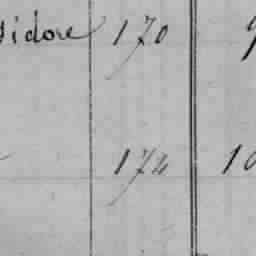 sidore 170 9
172 10